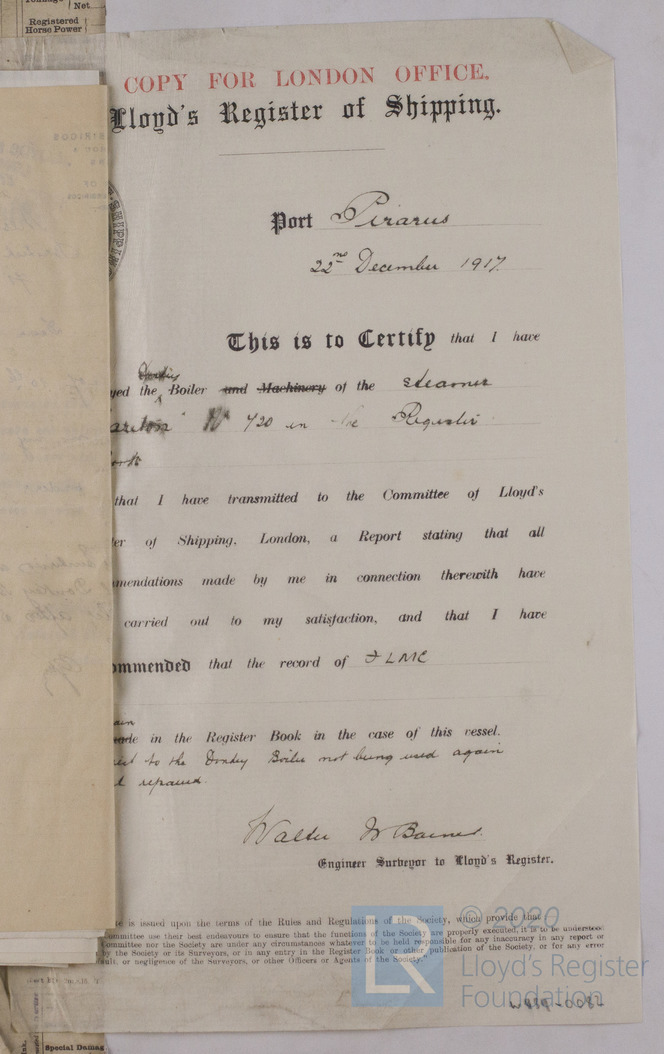 Net
Registered
Horse Power
COPY FOR LONDON OFFICE.
Lloyd's Register of Shipping.
Port Piraeus
22nd December 1917.
This is to Certify that I have
yed the Donkey Boiler and Machinery of the steamer
No 420 in the Register
that I have transmitted to the Committee of Lloyd's
ter of Shipping, London, a Report stating that all
mmendations made by me in connection therewith have
carried out to my satisfaction, and that I have
ommended that the record of + LMC
ade in the Register Book in the case of this vessel.
ject to the Donkey Boiler not being used again
repaired.
Walter W Barnes.
Engineer Surveyor to Lloyd's Register.
te is issued upon the terms of the Rules and Regulations of the Society, which provide that
Committee use their best endeavours to ensure that the functions of the Society are properly executed, it is to be understood
Committee nor the Society are under any circumstances whatever to be held responsible for any inaccuracy in any report or
by the Society or its Surveyors, or in any entry in the Register Book or other publication of the Society, or for any error
ault, or negligence of the Surveyors, or other Officers or Agents of the Society."
© 2020
LR
Lloyd's Register
Foundation
W439-0084
Special Damag